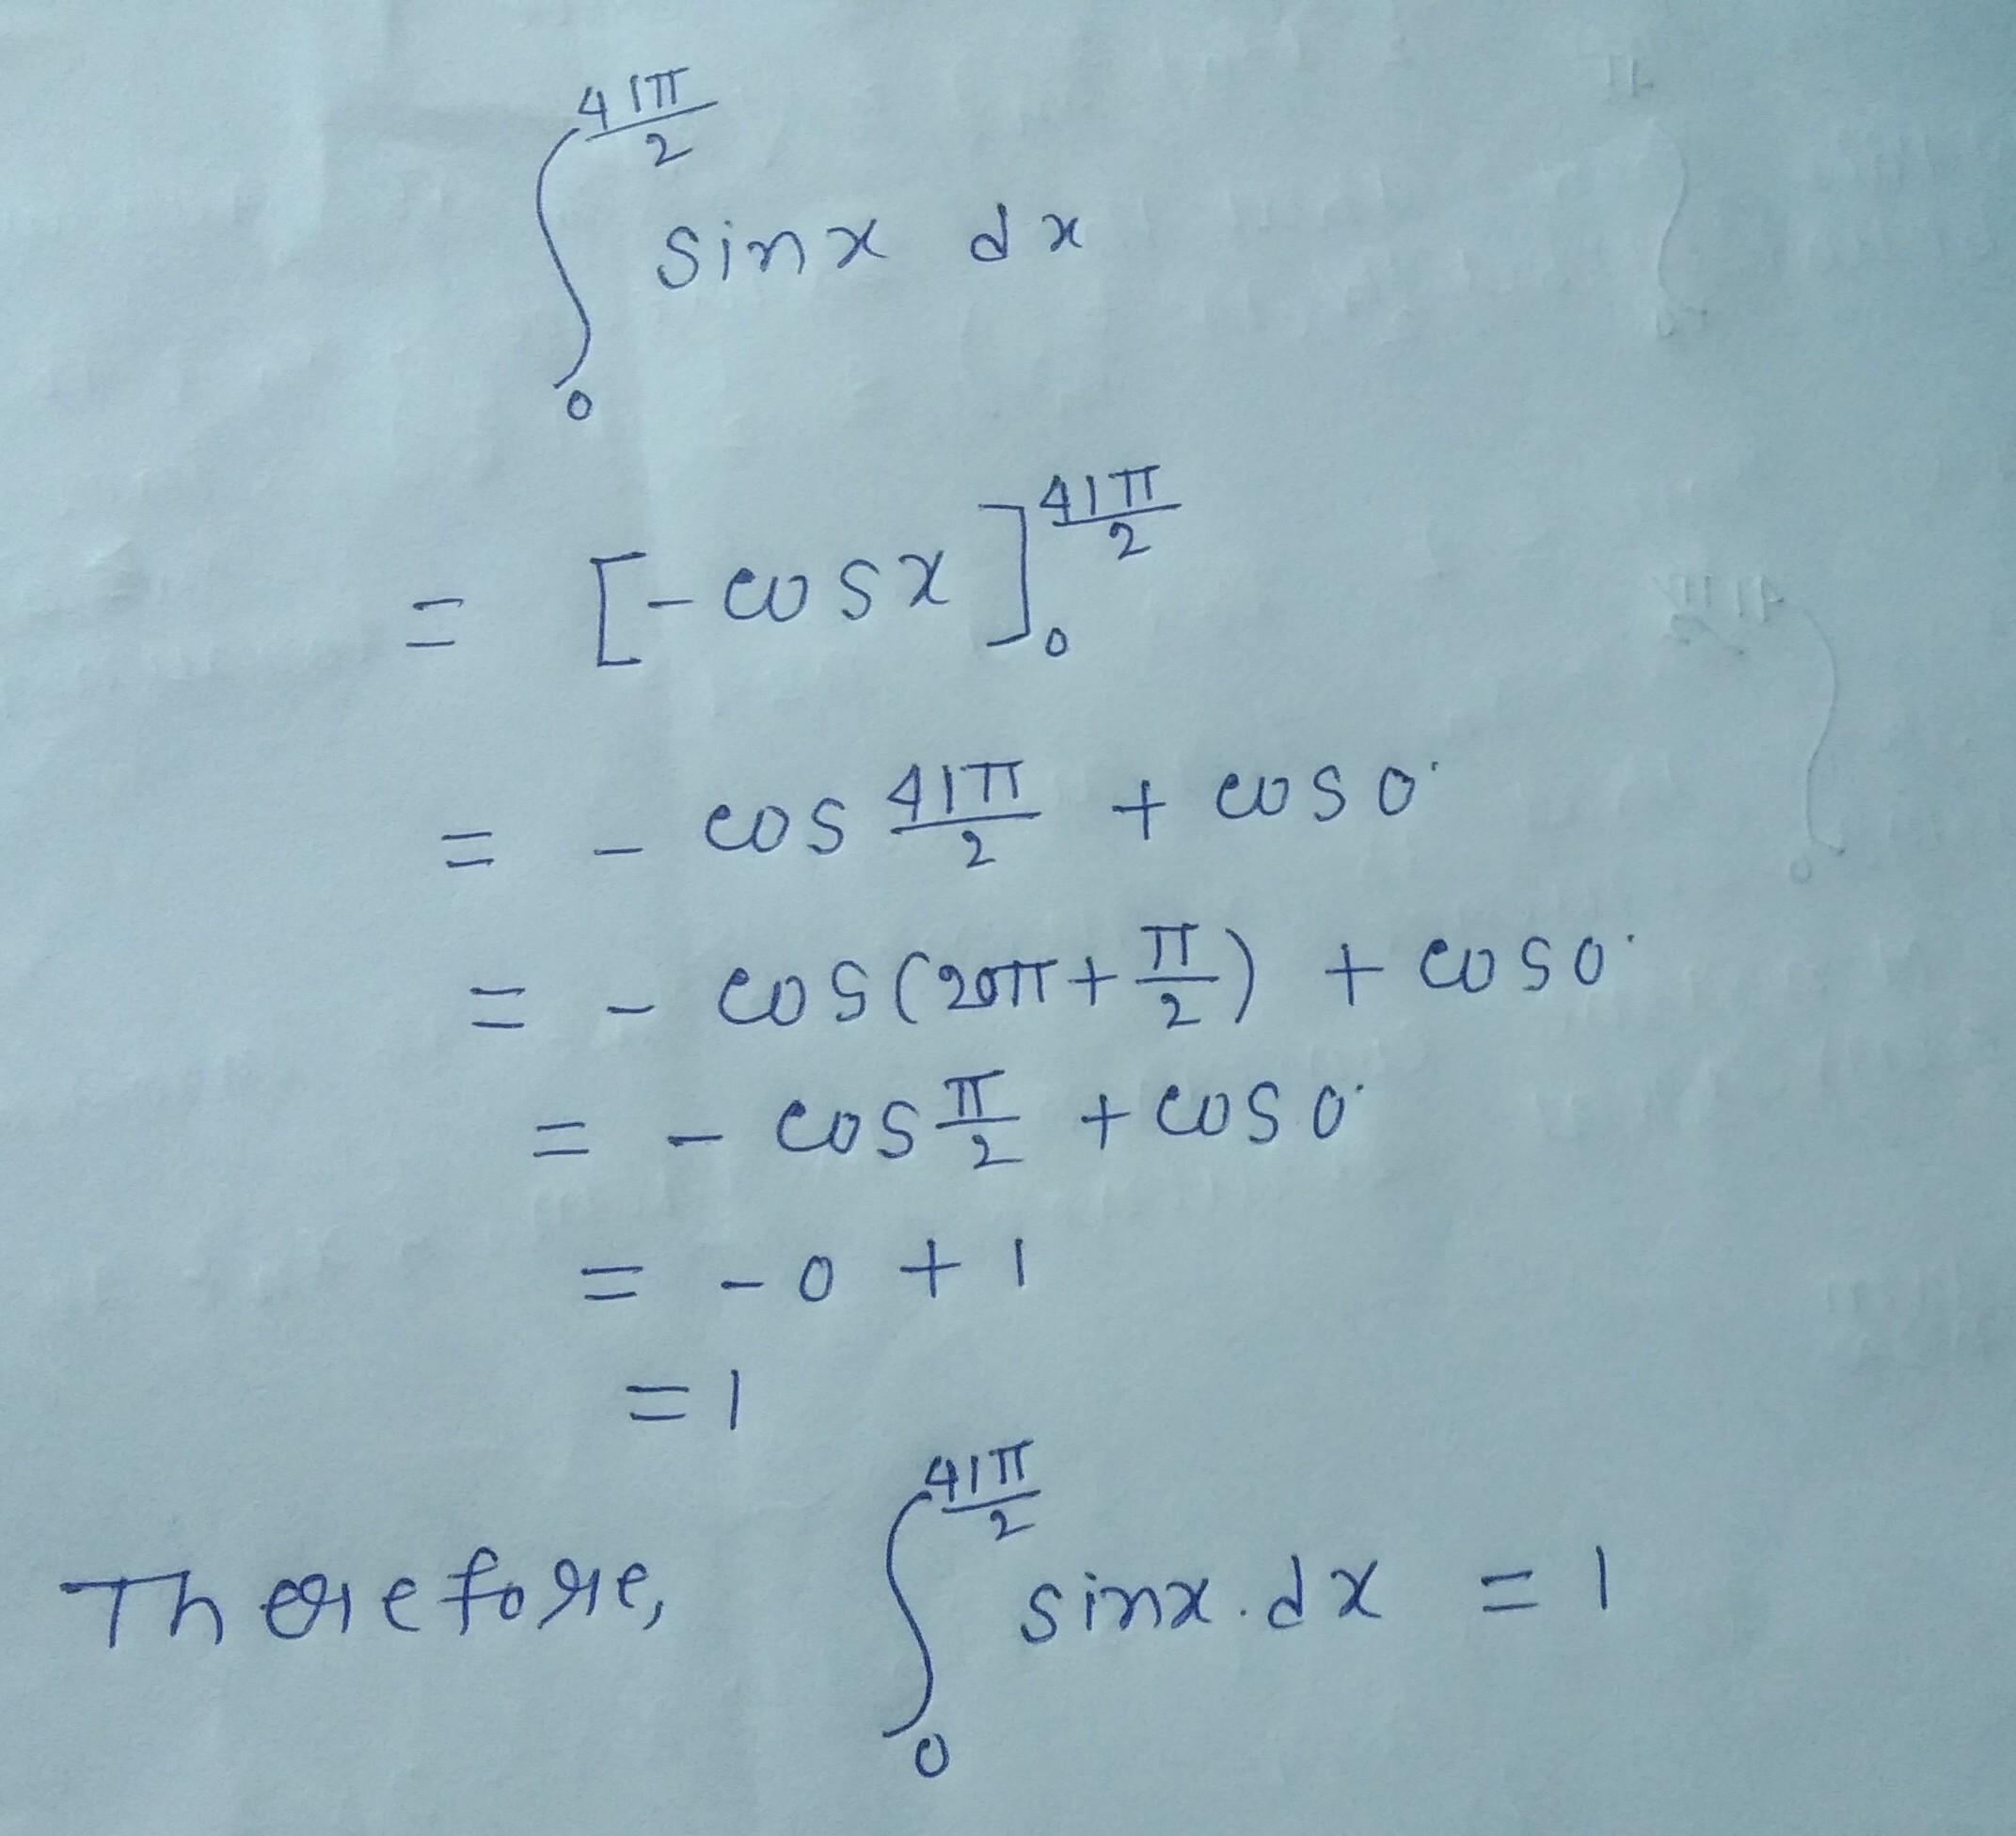 ∫₀^(41π/2) sinx dx
= [-cosx]₀^(41π/2)
= - cos 41π/2 + cos0°
= - cos(20π + π/2) + cos0°
= - cos π/2 + cos0°
= -0 + 1
= 1
Therefore, ∫₀^(41π/2) sinx.dx = 1